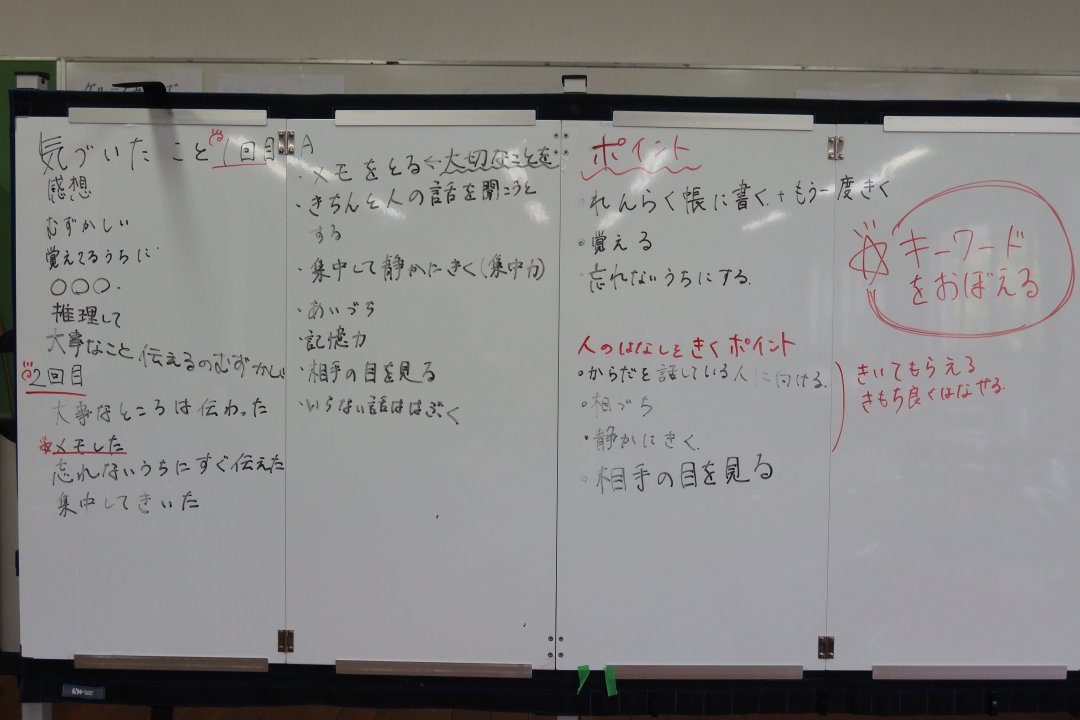 気づいたこと 1回目
感想
むずかしい
覚えてるうちに
〇〇〇.
推理して
大事なこと伝えるのむずかしい
2回目
大事なところは伝わった
メモした
忘れないうちにすぐ伝えた
集中してきいた
A
・メモをとる←大切なことを
・きちんと人の話を聞こうと
する
・集中して静かにきく(集中力)
・あいづち
・記憶力
・相手の目を見る
・いらない話ははぶく
ポイント
れんらく帳に書く.+もう一度きく
覚える
忘れないうちにする.
人のはなしをきくポイント
からだを話している人に向ける.
相づち
静かにきく.
相手の目を見る
キーワード
をおぼえる
きいてもらえる
きもち良くはなせる.